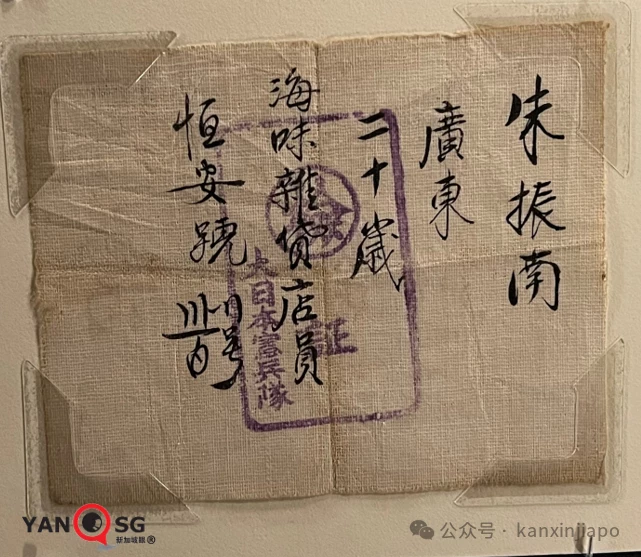 朱振南
廣東
二十歲
海味雜貨店員
恒安
号
証
大日本憲兵隊
YAN SG
新加坡眼®
公众号 · kanxinjiapo